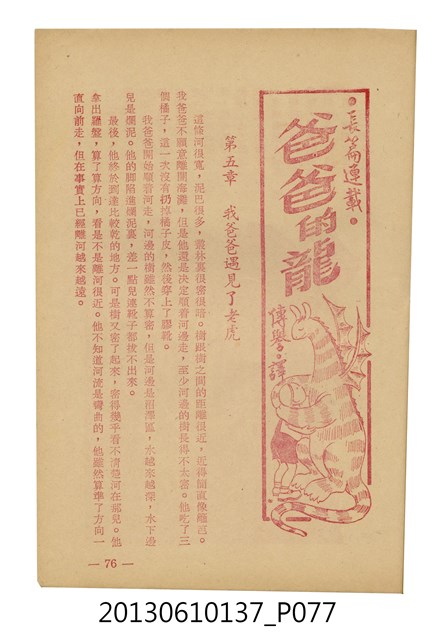 •長篇連載•
爸爸的龍
傅學•譯
第五章　我爸爸遇見了老虎
這條河很寬,泥巴很多,叢林裏很密很暗。樹與樹之間的距離很近,近得簡直像籬笆。
我爸爸不願意離開海灘,但是他還是決定順着河邊走,至少河邊的樹長得不太密。他吃了三
個橘子,這一次沒有扔掉橘子皮,然後穿上了膠靴。
我爸爸開始順着河走,河邊的樹雖然不算密,但是河邊是沼澤區,水越來越深,水下邊
兒是爛泥。他的脚陷進爛泥裏,差一點兒連靴子都拔不出來。
最後,他終於到達比較乾的地方。可是樹又密了起來,密得幾乎看不清楚河在那兒。他
拿出羅盤,算了算方向,看是不是離河很近。他不知道河流是彎曲的,他雖然算準了方向一
直向前走,但在事實上已經離河越來越遠。
— 76 —
20130610137_P077